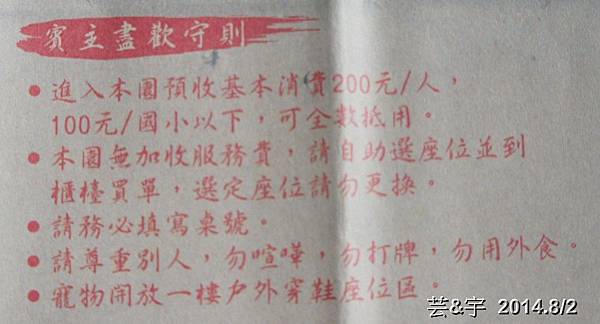 賓主盡歡守則
● 進入本園預收基本消費200元/人，
100元/國小以下，可全數抵用。
● 本園無加收服務費，請自助選座位並到
櫃檯買單，選定座位請勿更換。
● 請務必填寫桌號。
● 請尊重別人，勿喧嘩，勿打牌，勿用外食。
● 寵物開放一樓戶外穿鞋座位區。
芸&宇 2014.8/2